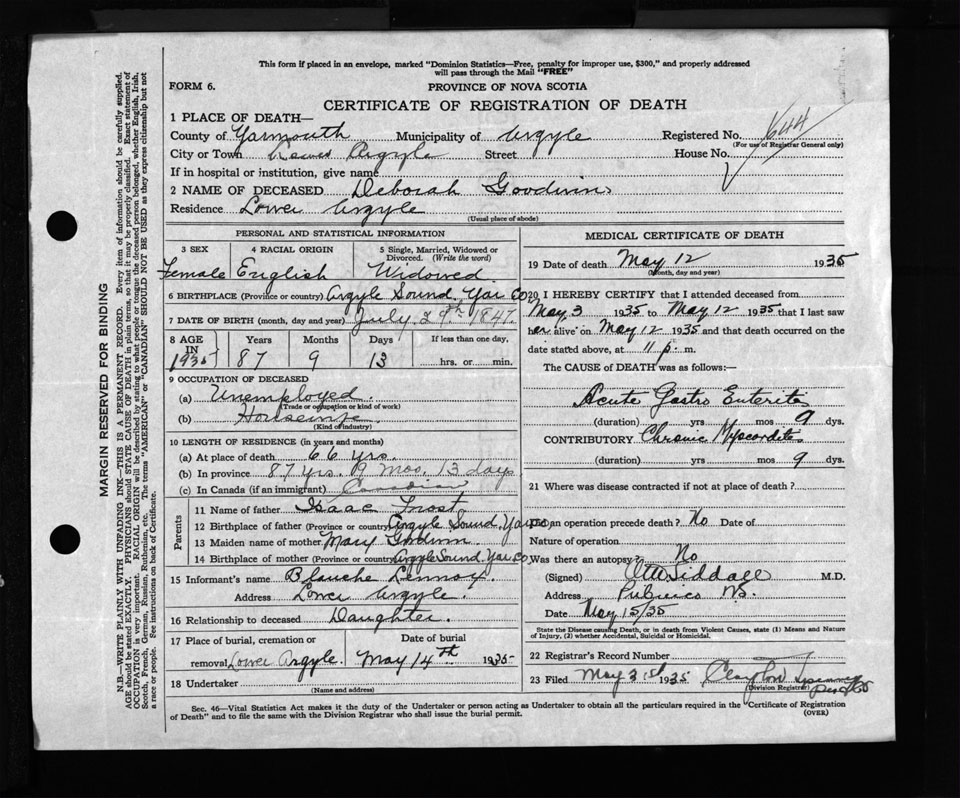 This form if placed in an envelope, marked "Dominion Statistics—Free, penalty for improper use, $300," and properly addressed
will pass through the Mail "FREE"
FORM 6.
PROVINCE OF NOVA SCOTIA
CERTIFICATE OF REGISTRATION OF DEATH
1 PLACE OF DEATH—
County of Yarmouth Municipality of Argyle Registered No. 644
(For use of Registrar General only)
City or Town Lower Argyle Street House No.
If in hospital or institution, give name
2 NAME OF DECEASED Deborah Goodwin
Residence Lower Argyle
(Usual place of abode)
PERSONAL AND STATISTICAL INFORMATION
3 SEX 4 RACIAL ORIGIN 5 Single, Married, Widowed or
Divorced. (Write the word)
Female English Widowed
6 BIRTHPLACE (Province or country) Argyle Sound, Yar Co
7 DATE OF BIRTH (month, day and year) July 29th 1847.
8 AGE Years Months Days If less than one day,
IN
1935 87 9 13 hrs. or min.
9 OCCUPATION OF DECEASED
(a) Unemployed.
(Trade or occupation or kind of work)
(b) Housewife.
(Kind of industry)
10 LENGTH OF RESIDENCE (in years and months)
(a) At place of death 66 yrs.
(b) In province 87 yrs. 9 mos. 13 days
(c) In Canada (if an immigrant) Canadian
Parents
11 Name of father Isaac Frost
12 Birthplace of father (Province or country) Argyle Sound, Yar Co.
13 Maiden name of mother Mary Goodwin
14 Birthplace of mother (Province or country) Argyle Sound. Yar. Co.
15 Informant's name Blanche Lennox.
Address Lower Argyle.
16 Relationship to deceased Daughter.
17 Place of burial, cremation or Date of burial
removal Lower Argyle. May 14th 1935
18 Undertaker
(Name and address)
MEDICAL CERTIFICATE OF DEATH
19 Date of death May 12 1935
(Month, day and year)
20 I HEREBY CERTIFY that I attended deceased from
May 3 1935 to May 12 1935 that I last saw
her alive on May 12 1935 and that death occurred on the
date stated above, at 11 p. m.
The CAUSE of DEATH was as follows:—
Acute Gastro Enteritis
(duration) yrs mos 9 dys.
CONTRIBUTORY Chronic Myocarditis
(duration) yrs mos 9 dys.
21 Where was disease contracted if not at place of death?
Did an operation precede death? No Date of
Nature of operation
Was there an autopsy? No
(Signed) Siddall M.D.
Address Pubnico N.S.
Date May 15/35
State the Disease causing Death, or in death from Violent Causes, state (1) Means and Nature
of Injury, (2) whether Accidental, Suicidal or Homicidal.
22 Registrar's Record Number
23 Filed May 31st 1935 Clayton
(Division Registrar)
Sec. 46—Vital Statistics Act makes it the duty of the Undertaker or person acting as Undertaker to obtain all the particulars required in the "Certificate of Registration
of Death" and to file the same with the Division Registrar who shall issue the burial permit.
(OVER)
MARGIN RESERVED FOR BINDING
N.B.—WRITE PLAINLY WITH UNFADING INK—THIS IS A PERMANENT RECORD. Every item of information should be carefully supplied.
AGE should be stated EXACTLY. PHYSICIANS should STATE CAUSE OF DEATH in plain terms, so that it may be properly classified. Exact statement of
OCCUPATION is very important. RACIAL ORIGIN will be described by stating to what people or tongue the deceased person belonged, whether English, Irish,
Scotch, French, German, Russian, Ruthenian, etc. The terms "AMERICAN" or "CANADIAN" SHOULD NOT BE USED as they express citizenship but not
a race or people. See instructions on back of Certificate.